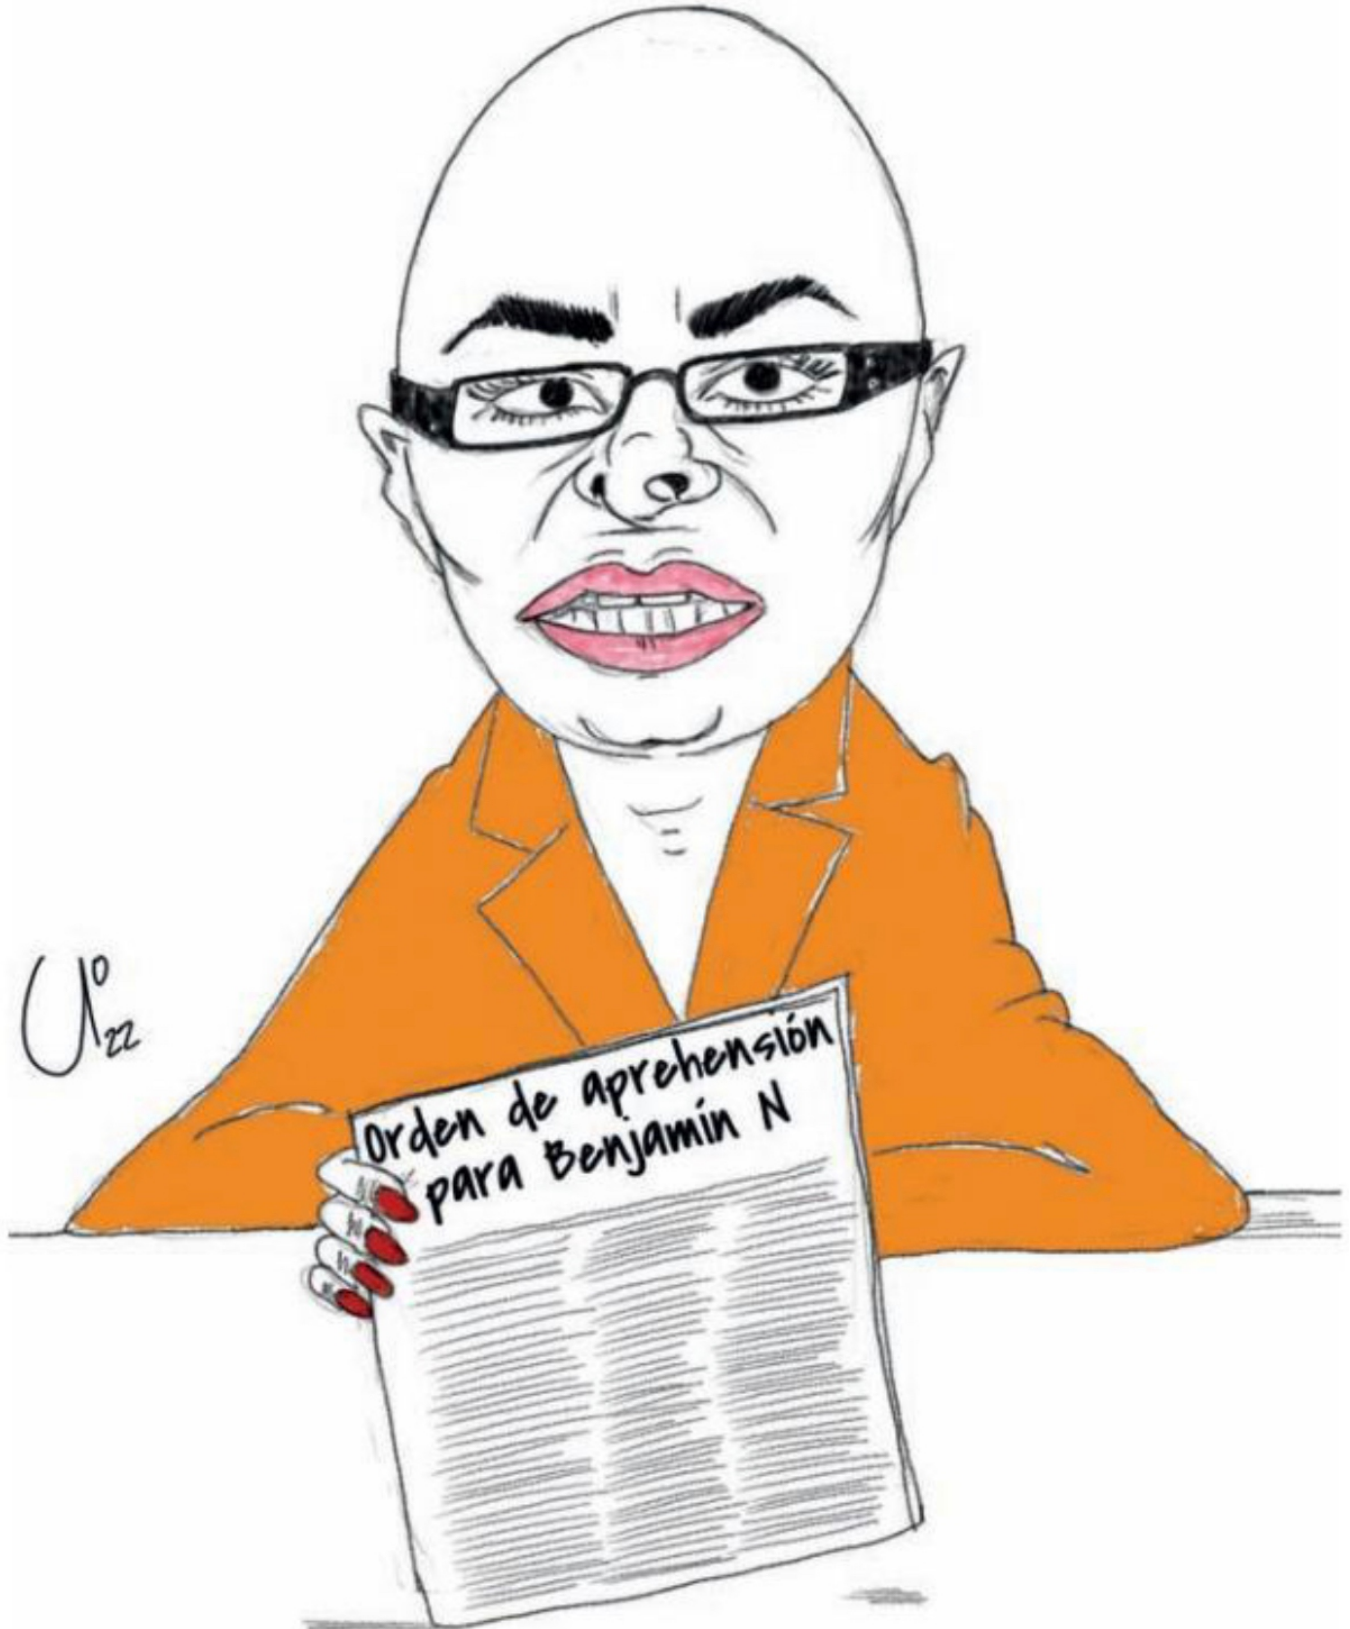 Orden de aprehensión
para Benjamín N
22